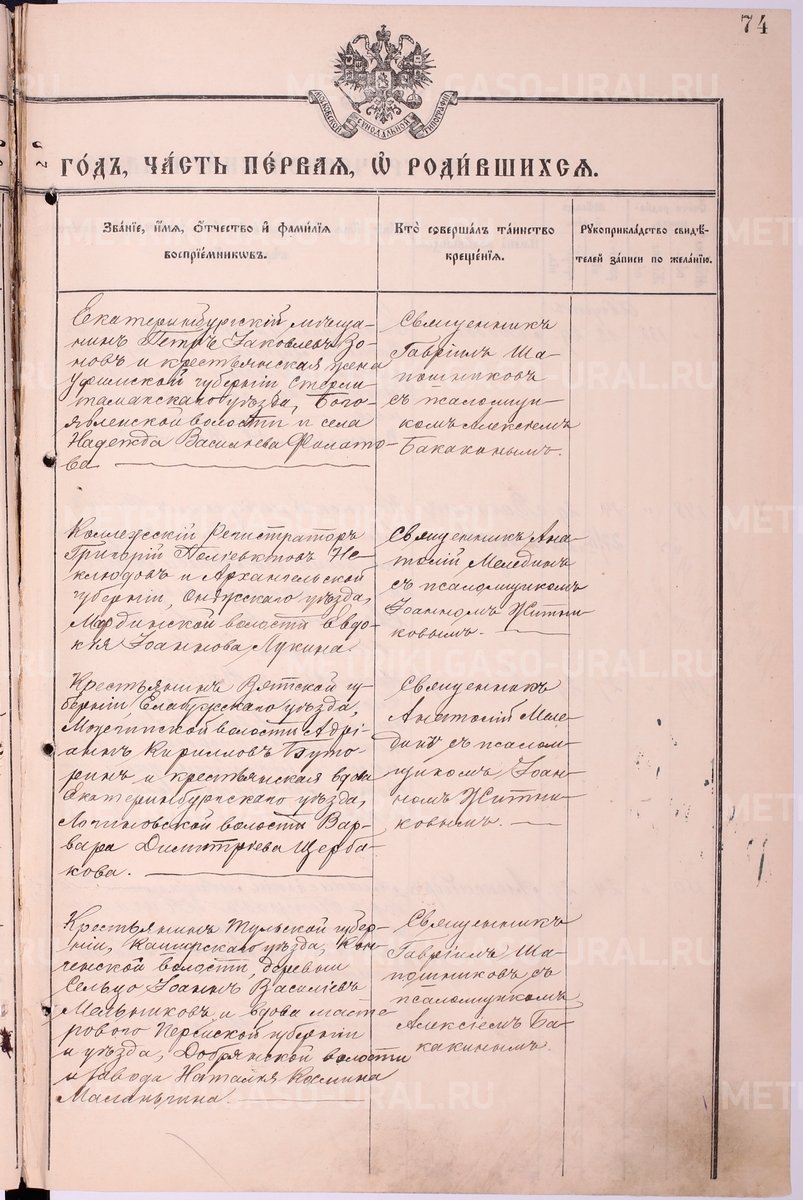 74
МОСКОВСКОЙ СѴНОДАЛЬНОЙ ТИПОГРАФІИ
ГО́ДЪ, ЧА́СТЬ ПЕ́РВАЯ, Ѽ РОДИ́ВШИХСѦ.
Зва́нїе, и́мѧ, ѻ҆́тчество и҆ фами́лїѧ
воспрїе́мникѡвъ.
Кто̀ соверша́лъ та́инство
креще́нїѧ.
Рꙋкоприкла́дство свидѣ́-
телей за́писи по жела́нїю.
Екатеринбургскій мѣща-
нинъ Петръ Іаковлевъ Зо-
новъ и крестьянская жена
Уфимской губерніи, Стерли-
тамакскаго уѣзда, Бого-
явленской волости и села
Надежда Васильева Филато-
ва
Священникъ
Гавріилъ Ша-
пошниковъ
съ псаломщи-
комъ Алексіемъ
Бакакинымъ.
Коллежскій Регистраторъ
Григорій Поліевктовъ Не-
клюдовъ и Архангельской
губерніи, Онежскаго уѣзда,
волости Евдо-
кія Іоаннова Лукина
Священникъ Ана-
толій Мелединъ
съ псаломщикомъ
Іоанномъ Житни-
ковымъ.
Крестьянинъ Вятской гу-
берніи, Елабужскаго уѣзда,
Можгинской волости Адрі-
анъ Кирилловъ Буто-
ринъ и крестьянская вдова
Екатеринбургскаго уѣзда,
Логиновской волости Вар-
вара Димитріева Щерба-
кова.
Священникъ
Анатолій Меле-
динъ съ псалом-
щикомъ Іоан-
номъ Житни-
ковымъ.
Крестьянинъ Тульской губер-
ніи, Каширскаго уѣзда,
волости, деревни
Сельцо Іоаннъ Василіевъ
Мельниковъ и вдова масте-
рового Пермской губерніи
и уѣзда, Добрянской волости
и завода Наталія Космина
Маланьина.
Священникъ
Гавріилъ Ша-
пошниковъ съ
псаломщикомъ
Алексіемъ Ба-
какинымъ.
METRIKI.GASO-URAL.RU